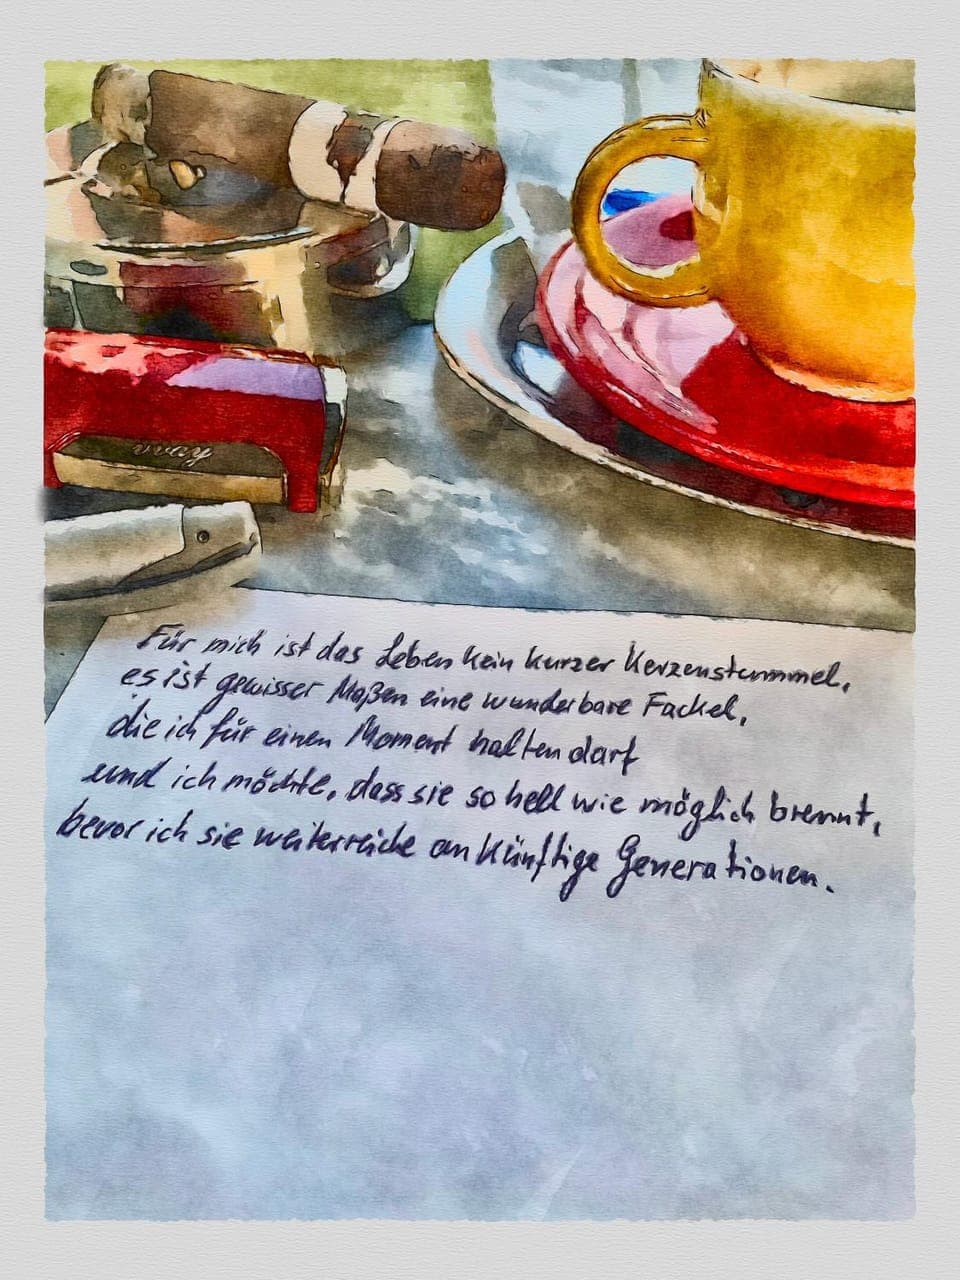 away
Für mich ist das Leben kein kurzer Kerzenstummel,
es ist gewisser Maßen eine wunderbare Fackel,
die ich für einen Moment halten darf
und ich möchte, dass sie so hell wie möglich brennt,
bevor ich sie weiterreiche an künftige Generationen.